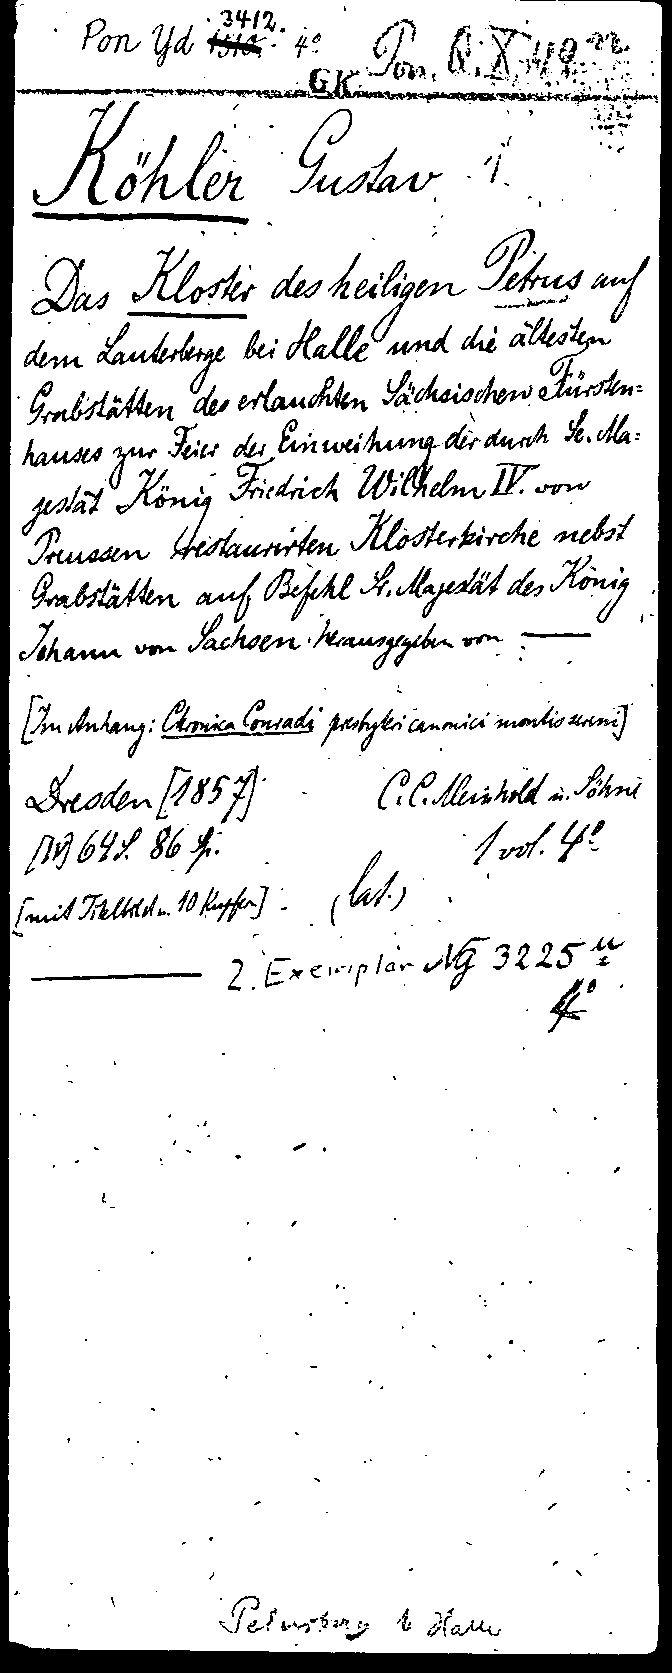 3412.
Pon Yd 4° Pon. Q. X. 49
GK
Köhler Gustav
Das Kloster des heiligen Petrus auf
dem Lauterberge bei Halle und die ältesten
Grabstätten des erlauchten Sächsischen Fürsten=
hauses zur Feier der Einweihung der durch Se. Ma=
jestät König Friedrich Wilhelm IV. von
Preussen restaurirten Klosterkirche nebst
Grabstätten auf Befehl Sr. Majestät des König
Johann von Sachsen herausgegeben von —
[Im Anhang: Chronica Conradi presbyteri canonici montis sereni]
Dresden [1857] C. C. Meinhold u. Söhne
[IV] 64 S. 86 Sp. 1 vol. 4°
[mit Titelbild u. 10 Kupfern] (lat.)
2. Exemplar Ng 3225 u
4°
Petersberg b Halle